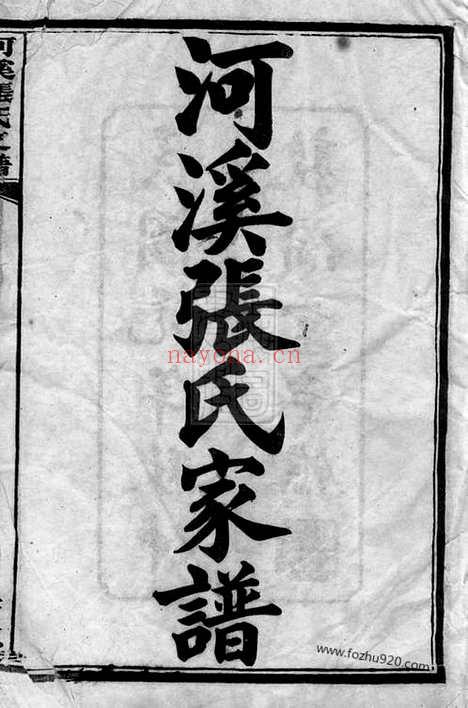 河溪張氏家譜
河溪張氏家譜
nayona.cn
www.fozhu920.com